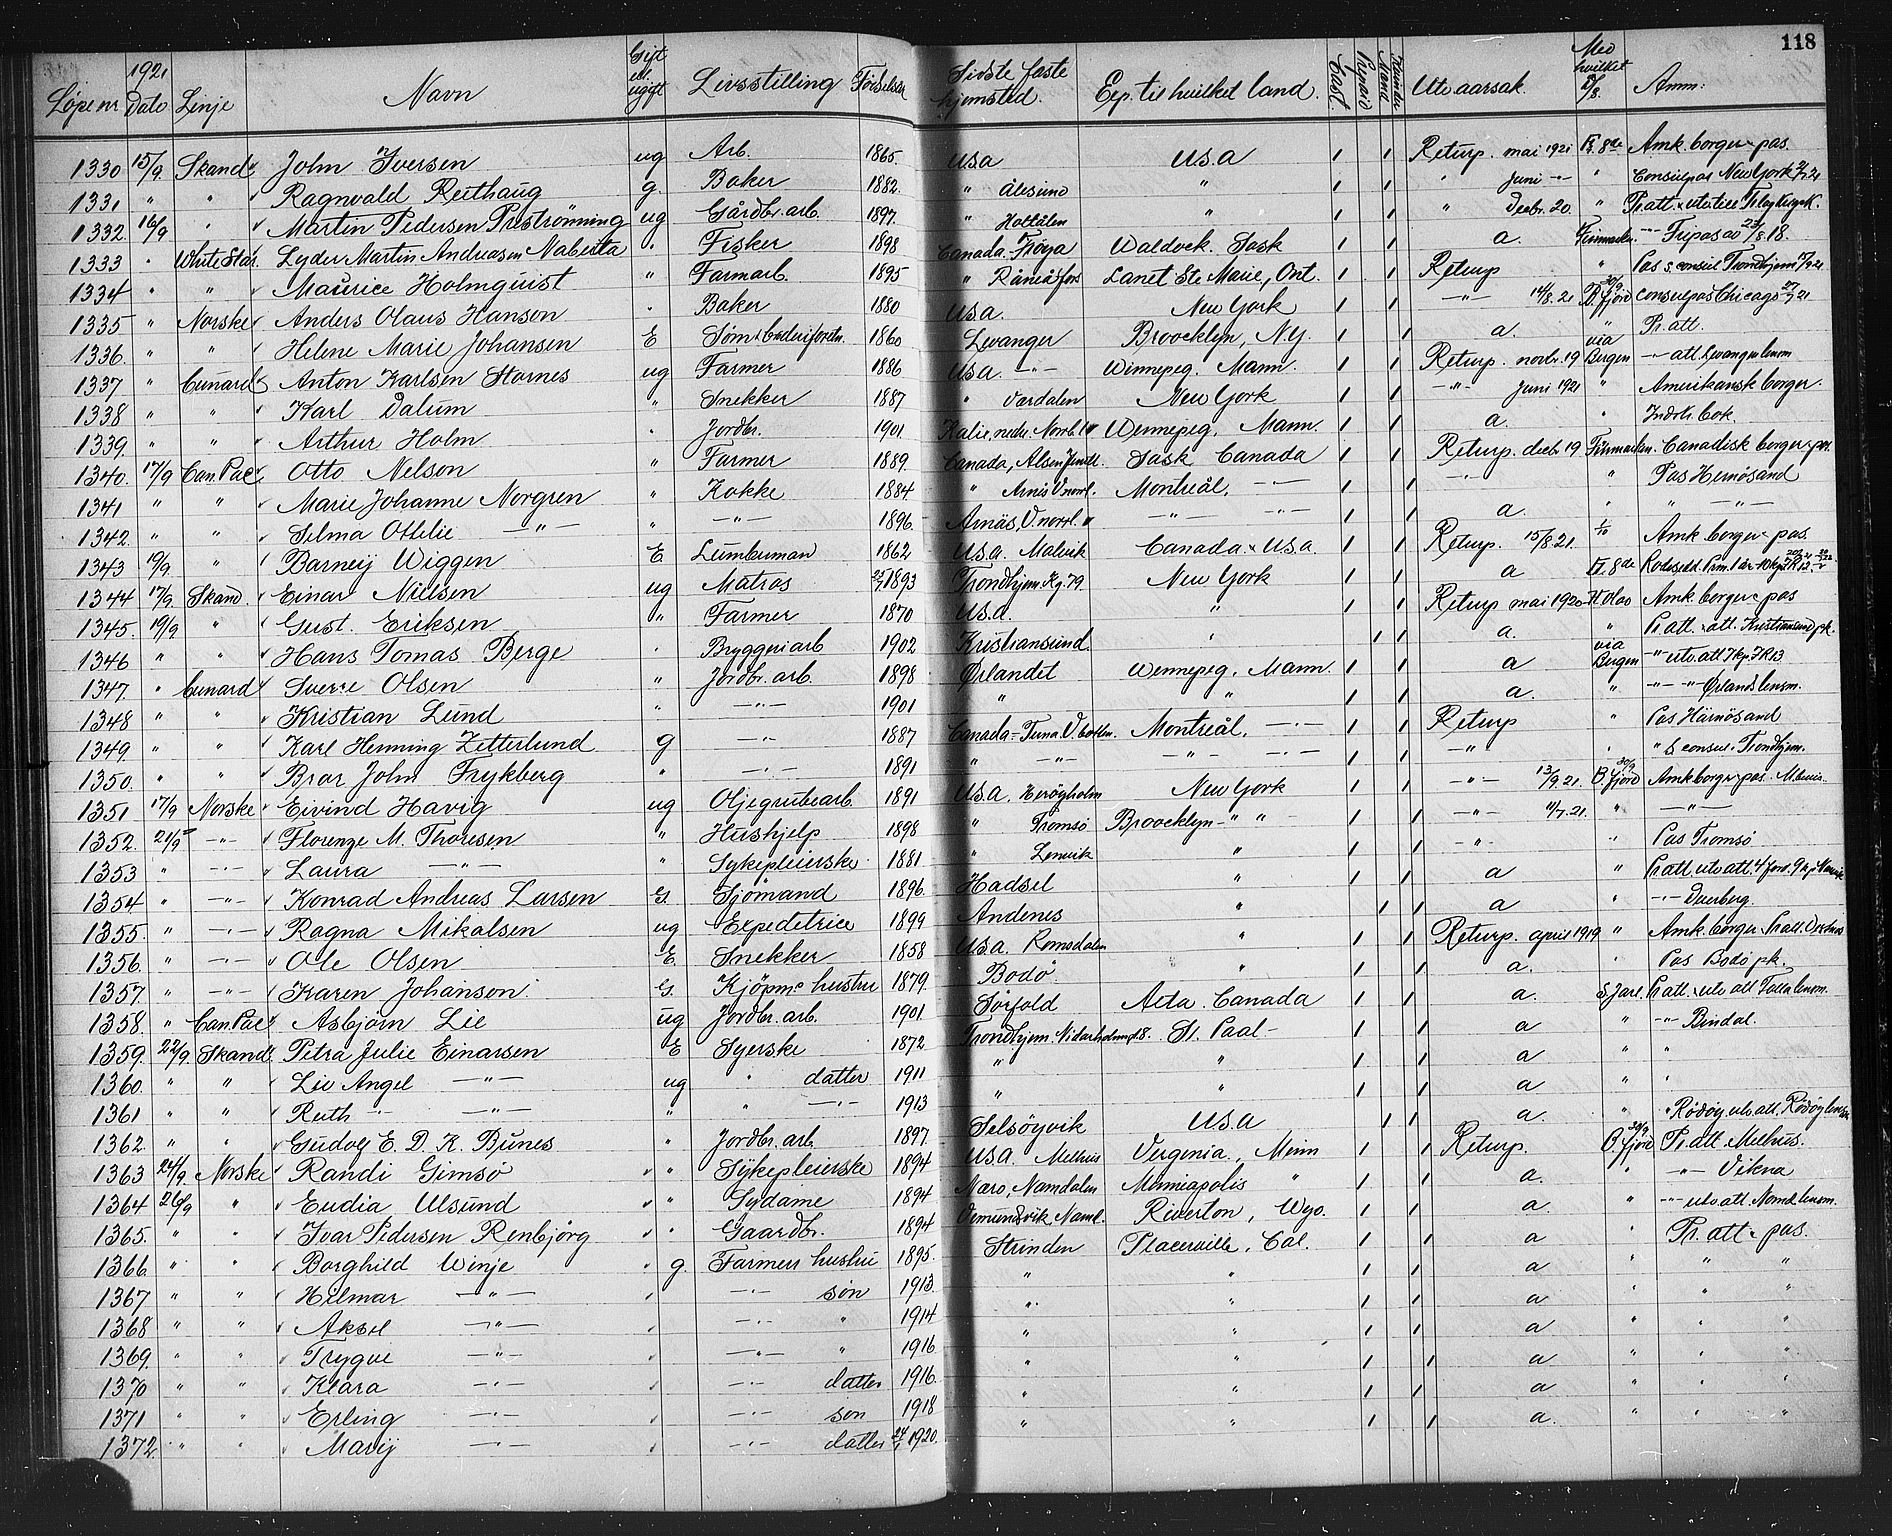 118
1921
Løpenr Dato Linje Navn Gift el. ugift Livsstilling Fødselsår Sidste faste hjemsted. Exp. til hvilket land. Cash Prepaid Mænd Kvinder Utv aarsak. Med hvilket D/S. Anm:
1330 15/9. Skand John Iversen ug Arb. 1865. USA USA 1 1 Returp. mai 1921 Kg. 8de Amk. borger pas.
1331 " " Ragnvald Reithaug g. Baker 1882. " Ålesund " 1 1 " juni -"- " Consulpas New York
1332. 16/9 " Martin Pedersen ug Gårdbr. arb. 1897. " Hottålen " 1 1 " Decbr. 20. " Pr att.
1333 " White Star. Lyder Martin Andreasen " Fisker 1898 Canada. Frøya Waldeck. Sask 1 1 a. Finmarken. -"- Fripas av 18.
1334 " " Maurice Holmquist " Farmarb. 1895 " Ste Marie, Ont. 1 1 Returp " Pas s. consul Trondhjem
1335 " Norske Anders Olaus Hansen " Baker 1880 USA. New York 1 1 -"- 14/8. 21 B. fjord consulpas Chicago
1336. " " Helene Marie Johansen E 1860 Levanger Broocklyn, N.Y. 1 1 a. " Pr. att.
1337 " Cunard Anton Karlsen Starnes ug Farmer 1886 USA. -"- Winnepeg. Mann. 1 1 Returp. novbr. 19 via Bergen -"- att. Levanger lensm
1338 " " Karl Dalum " Snekker 1887 " Værdalen New York 1 1 -"- juni 1921 " Amerikansk borger.
1339. " " Arthur Holm " Jordbr. 1901. Wennepeg. Mann. 1 1 a. "
1340. 17/9 Can. Pac Otto Nelson " Farmer 1889. Canada, Sask Canada 1 1 Returp. decbr 19 Finmarken. Canadisk borger pas.
1341 " " Marie Johanne Norgren " Kokke 1884 " Montreål. -"- 1 1 -"- " Pas Hernösand
1342. " " Selma Ottilie -"- " -"- 1896. Arnäs, V. norrl. " -"- -"- 1 1 a. " " -"-
1343 19/9 " Barney Wiggen E Lumberman 1862 USA. Malvik Canada USA 1 1 Returp. 15/8 21. 1/10 Amk. borger pas
1344 17/9. Skand. Einar Nilssen ug Matros 1893 Trondhjem. Kg. 79. New York 1 1 a Kg. 8de
1345. 19/9 " Gust. Eriksen " Farmer 1870 USA. " 1 1 Returp mai 1920 K. Olav Amk. borger pas
1346 " " Hans Tomas Berge " Bryggeriarb 1902 Kristiansund " 1 1 a. " Pr att. att. Kristiansund pk.
1347. " Cunard Sverre Olsen " Jordbr. arb. 1898 Ørlandet Wennepeg. Mann. 1 1 a via Bergen -"- utv. att.
1348 " " Kristian Lund " -"- 1901 " " " 1 1 a. " -"- -"- Ørlands lensm.
1349. " " Karl Henning Zetterlund g -"- 1887 Canada- Montreål. -"- 1 1 Returp " Pas Härnösand
1350. " " Bror John Frykberg " -"- 1891 " -"- -"- -"- 1 1 -"- " " s consul. Trondhjem.
1351 17/9 Norske Eivind Havig ug Oljegrubearb. 1891 USA. Herøyholm New York 1 1 -"- 13/9. 21. B fjord Amk borger pas.
1352. 21/9 -"- Florenze M. Thoresen " Hushjelp 1898 " Tromsø Broocklyn- " " - 1 1 -"- 11/7. 21. " -"-
1353 " -"- Laura -"- " Sykepleierske 1881. " Lenvik " 1 1 -"- " Pas Tromsø
1354 " -"- Konrad Andreas Larsen G. Sjömand 1896. Hadsel " 1 1 a " Pr att utv att.
1355. " -"- Ragna Mikalsen ug Expeditrice 1899 Andenes " 1 1 a " -"- Dverberg.
1356. " -"- Ole Olsen E Snekker 1858 USA. Romsdalen " 1 1 Returp. april 1919 " Amk. borger
1357. " -"- Karen Johanson G. Kjøpm. hustru 1879. Bodø " 1 1 a. " Pas Bodø pk.
1358. " Can. Pac Asbjørn Lie ug Jordbr. arb. 1901. Sørfold Canada 1 1 a. S. Jarl Pr att. utv att lensm.
1359. 22/9. Skand Petra Julie Einarsen E Syerske 1872 Trondhjem. St. Paal- 1 1 a " -"- Bindal.
1360. " " Liv Angel -"- ug " datter 1911 " " 1 1 a " "
1361 " " Ruth -"- -"- " " -"- 1913 " " 1 1 a " "
1362. " " Gudolf E. D. K. Bjunes " Jordbr. arb 1897. Selsøyvik USA 1 1 a. " " Rödøy utv att. Rödøy lensm
1363 24/9 Norske Randi Gimsø " Sykepleierske 1894 USA. Melhus Verginia., Minn 1 1 Returp. B. fjord Pr att Melhus.
1364 26/9 " Eudia Ulsund " Sydame 1894 Næro, Namdalen Minniapolis " 1 1 a. -"- Vikna
1365. " " Ivar Pedersen Renbjörg " Gaardbr. 1894 Riverton, Wyo. 1 1 a. " -"- utv att. Namd. lensm.
1366. " " Borghild Winje g. Farmers hustru 1895. Strinden Placerville, Cal. 1 1 a " Pr. att pas.
1367 " " Hilmar -"- -"- søn 1913. " " 1 1 a " " "
1368 " " Aksel -"- -"- " 1914 " " 1 1 a " " "
1369. " " Trygve -"- -"- " 1916 " " 1 1 a " " "
1370 " " Klara -"- -"- datter 1916. " " 1 1 a " " "
1371 " " Erling -"- -"- søn 1918 " " 1 1 a " " "
1372. " " Marij -"- -"- datter 1920. " " 1 1 a. " " "